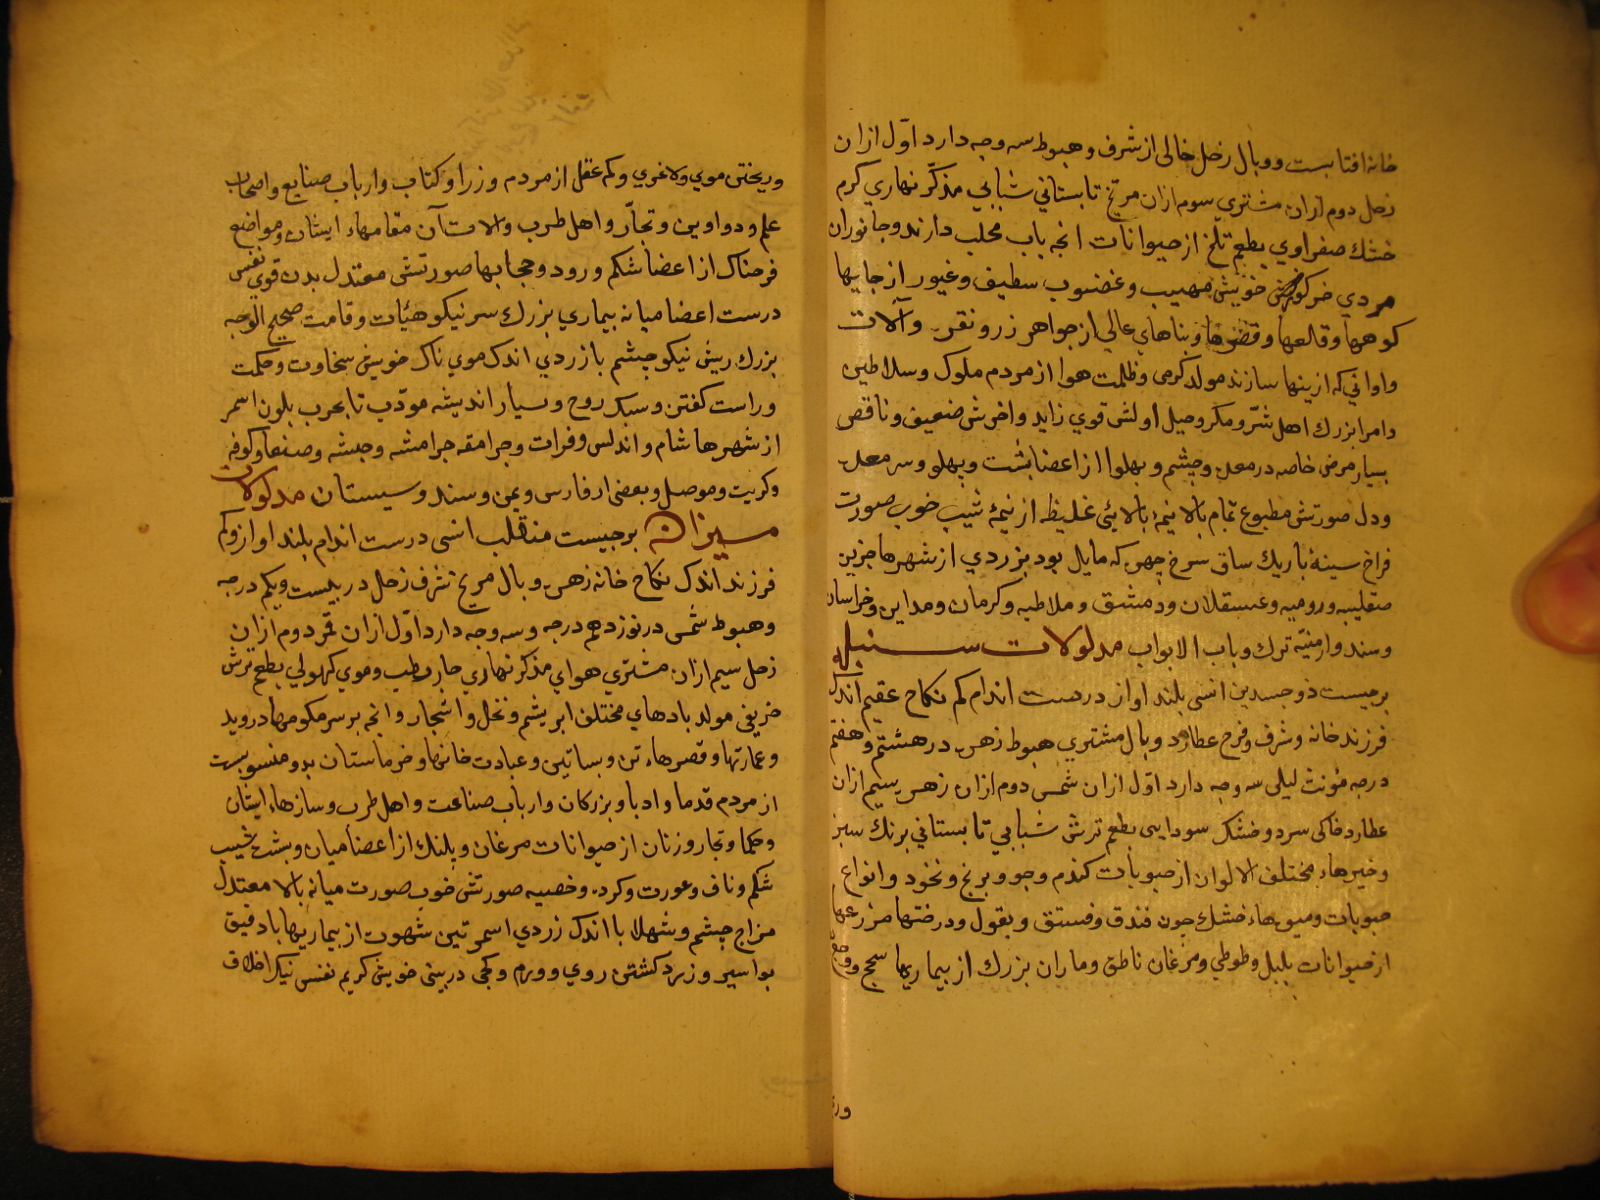 خانه افتابست ووبال زحل خالی از شرف وهبوط سه وجه دارد اوّل ازان
زحل دوم ازان مشتری سوم ازان مریخ تابستانی شبابی مذکّر نهاری کرم
خشك صفراوی بطعم تلخ از حیوانات انچه باب مخلب دارند وجانوران
مردی خر کوهی خویش مهیب وغضوب سطیف وغیور از جایها
کوهها وقالعها وقصرها وبناهای عالی از جواهر زر ونقره وآلات
واوانی که ازینها سازند مولد کرمی وظلمت هوا از مردم ملوک وسلاطین
وامرا بزرك اهل شرّ ومکر وحیل اولش قوی زاید واخرش ضعیف وناقص
بسیار مرض خاصه در معده وچشم وپهلوا از اعضا پشت وپهلو وسر معده
ودل صورتش مطبوع تمام بالا نیمه بالایی غلیظ از نیمهٔ شیب خوب صورت
فراخ سینهٔ باریك ساق سرخ چهره که مایل بود بزردی از شهرها جزین
صقلیبه ورومیه وعسقلان ودمشق وملاطیه وکرمان ومداین وخراسان
وسند وارمنیّه ترك وباب الابواب مدلولات سنبله
برجیست ذو جسدین انسی بلند اواز درست اندام کم نکاح عقیم اندك
فرزند خانه وشرف وفرح عطارد وبال مشتری هبوط زهره در هشتم وهفتم
درجه مؤنث لیلی سه وجه دارد اوّل ازان شمس دوم ازان زهره سیم ازان
عطارد خاکی سرد وخشك سودایی بطعم ترش شبابی تابستانی برنك سبز
وخیرهاء مختلف الالوان از حبوبات کندم وجو وبرنج ونخود وانواع
حبوبات ومیوهاء خشك چون فندق وفستق وبقول ودرختها مزرعها
از حیوانات بلبل وطوطی ومرغان ناطق وماران بزرك از بیماریها سحج ووجع
وریختن موی ولاغری وکم عقل از مردم وزرا وکتّاب وارباب صنایع واصحاب
علم ودواوین وتجّار واهل طرب والات آن مقامهاء ایشان ومواضع
فرحناک از اعضا شکم وروده وحجابها صورتش معتدل بدن قوی نفس
درست اعضا میانه بیماری بزرك سر نیکو هیئات وقامت صحیح الوجه
بزرك ریش نیکو چشم بازردی اندک موی ناک خویش سخاوت وحکمت
وراست کفتن وسبک روح وبسیار اندیشه مودّب تابحرب بلون اسمر
از شهرها شام واندلس وفرات وجرامقه جرامشه وحبشه وصنعا وکوفه
وکریت وموصل وبعضی از فارس ویمن وسند وسیستان مدلولات
میزان برجیست منقلب انسی درست اندام بلند اواز وکم
فرزند اندک نکاح خانه زهره وبال مریخ شرف زحل در بیست ویکم درجه
وهبوط شمس در نوزدهم درجه وسه وجه دارد اوّل ازان قمر دوم ازان
زحل سیم ازان مشتری هوای مذکر نهاری حار رطب وموی کهولی بطعم ترش
خریفی مولد بادهای مختلف ابریشم ونخل واشجار وانچه بر سر کوهها در روید
وعمارتها وقصرهاء تن وبساتین وعبادت خانها وخرماستان بدو منسوبست
از مردم قدما وادبا وبزرکان وارباب صناعت واهل طرب وسازهاء ایشان
وحکما وتجار وزنان از حیوانات مرغان وپلنك از اعضا میان وبشرح شیب
شکم وناف وعورت وکرده وخصیه صورتش خوب صورت میانه بالا معتدل
مزاج چشم وشهلا با اندک زردی اسمر تین شهوت از بیماریها باد فتق
بواسیر وزرد کشتن روی وورم وکجی در بینی خویش کریم نفس نیک اخلاق